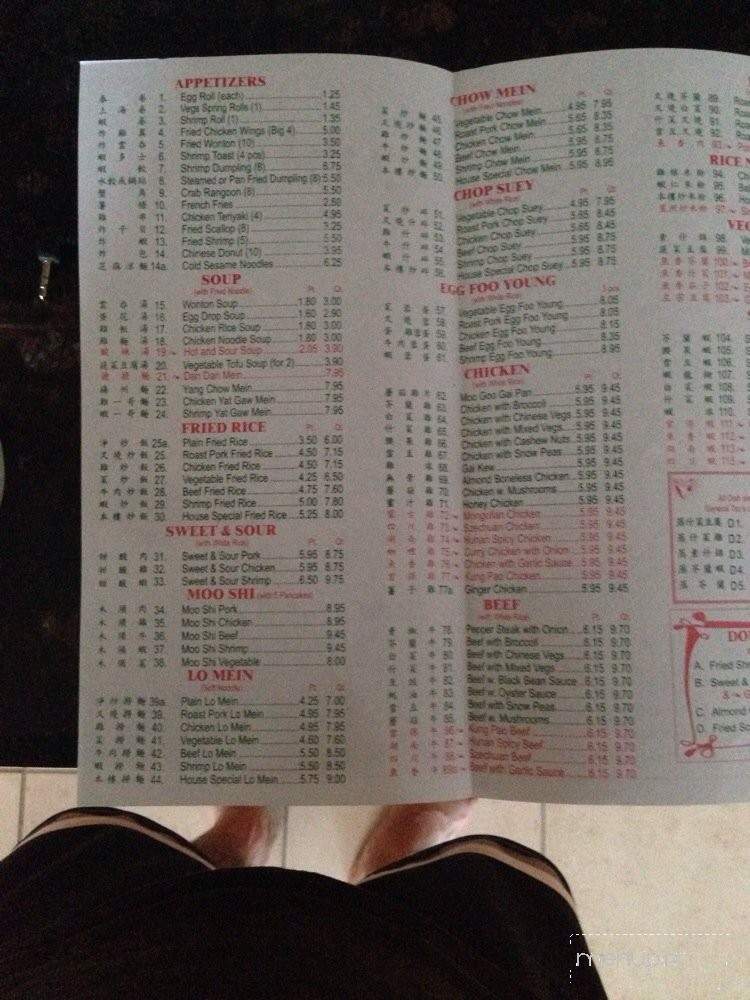 APPETIZERS
春 卷 1. Egg Roll (each) 1.25
上 海 卷 2. Vege Spring Rolls (1) 1.45
蝦 卷 3. Shrimp Roll (1) 1.35
炸 雞 翼 4. Fried Chicken Wings (Big 4) 5.00
炸 雲 吞 5. Fried Wonton (10) 3.50
蝦 多 士 6. Shrimp Toast (4 pcs) 3.25
蝦 餃 7. Shrimp Dumpling (8) 8.75
水餃或鍋貼 8. Steamed or Pan Fried Dumpling (8) 5.50
蟹 9. Crab Rangoon (8) 5.50
薯 條 10. French Fries 2.50
雞 串 11. Chicken Teriyaki (4) 4.95
炸 干 貝 12. Fried Scallop (8)
炸 蝦 13. Fried Shrimp (5) 5.50
炸 包 14. Chinese Donut (10) 3.95
芝麻涼麵 14a. Cold Sesame Noodles 6.25
SOUP
(with Fried Noodle)
Pt. Qt.
雲 吞 湯 15. Wonton Soup 1.80 3.00
蛋 花 湯 16. Egg Drop Soup 1.60 2.90
雞 飯 湯 17. Chicken Rice Soup 1.80 3.00
雞 麵 湯 18. Chicken Noodle Soup 1.80 3.00
酸 辣 湯 19. Hot and Sour Soup 2.05 3.90
蔬菜豆腐湯 20. Vegetable Tofu Soup (for 2) 3.90
21. Dan Dan Mein 7.95
揚 州 麵 22. Yang Chow Mein 7.95
雞 一 哥 麵 23. Chicken Yat Gaw Mein 7.95
蝦 一 哥 麵 24. Shrimp Yat Gaw Mein 7.95
FRIED RICE
Pt. Qt.
淨 炒 飯 25a. Plain Fried Rice 3.50 6.00
叉 燒 炒 飯 25. Roast Pork Fried Rice 4.50 7.15
雞 炒 飯 26. Chicken Fried Rice 4.50 7.15
菜 炒 飯 27. Vegetable Fried Rice 4.25 6.50
牛 肉 炒 飯 28. Beef Fried Rice 4.75 7.60
蝦 炒 飯 29. Shrimp Fried Rice 5.00 7.80
本 樓 炒 飯 30. House Special Fried Rice 5.25 8.00
SWEET & SOUR
(with White Rice)
Pt. Qt.
甜 酸 肉 31. Sweet & Sour Pork 5.95 8.75
甜 酸 雞 32. Sweet & Sour Chicken 5.95 8.75
甜 酸 蝦 33. Sweet & Sour Shrimp 6.50 9.75
MOO SHI (with 5 Pancakes)
木 須 肉 34. Moo Shi Pork 8.95
木 須 雞 35. Moo Shi Chicken 8.95
木 須 牛 36. Moo Shi Beef 9.45
木 須 蝦 37. Moo Shi Shrimp 9.45
木 須 菜 38. Moo Shi Vegetable 8.00
LO MEIN
(Soft Noodle)
Pt. Qt.
淨 炒 撈 麵 39a. Plain Lo Mein 4.25 7.00
叉 燒 撈 麵 39. Roast Pork Lo Mein 4.95 7.95
雞 撈 麵 40. Chicken Lo Mein 4.95 7.95
菜 撈 麵 41. Vegetable Lo Mein 4.60 7.60
牛 肉 撈 麵 42. Beef Lo Mein 5.50 8.50
蝦 撈 麵 43. Shrimp Lo Mein 5.50 8.50
本 樓 撈 麵 44. House Special Lo Mein 5.75 9.00
CHOW MEIN
(with Fried Noodles)
Pt. Qt.
菜 炒 麵 45. Vegetable Chow Mein 4.95 7.95
叉 燒 炒 麵 46. Roast Pork Chow Mein 5.65 8.35
雞 炒 麵 47. Chicken Chow Mein 5.65 8.35
牛 炒 麵 48. Beef Chow Mein 5.95 8.75
蝦 炒 麵 49. Shrimp Chow Mein 5.95 8.75
本 樓 炒 麵 50. House Special Chow Mein 5.95 8.95
CHOP SUEY
(with White Rice)
Pt. Qt.
菜 什 碎 51. Vegetable Chop Suey 4.95 7.95
叉 燒 什 碎 52. Roast Pork Chop Suey 5.65 8.45
雞 什 碎 53. Chicken Chop Suey 5.65 8.45
牛 什 碎 54. Beef Chop Suey 5.95 8.75
蝦 什 碎 55. Shrimp Chop Suey 5.95 8.75
本 樓 什 碎 56. House Special Chop Suey 5.95 8.75
EGG FOO YOUNG
(with White Rice)
3 pcs
菜 蓉 蛋 57. Vegetable Egg Foo Young 8.05
叉 燒 蓉 蛋 58. Roast Pork Egg Foo Young 8.05
雞 蓉 蛋 59. Chicken Egg Foo Young 8.15
牛 肉 蓉 蛋 60. Beef Egg Foo Young 8.35
蝦 蓉 蛋 61. Shrimp Egg Foo Young 8.95
CHICKEN
(with White Rice)
Pt. Qt.
蘑 菇 雞 片 62. Moo Goo Gai Pan 5.95 9.45
芥 蘭 雞 63. Chicken with Broccoli 5.95 9.45
白 菜 雞 64. Chicken with Chinese Vegs 5.95 9.45
什 菜 雞 65. Chicken with Mixed Vegs 5.95 9.45
腰 果 雞 66. Chicken with Cashew Nuts 5.95 9.45
雪 豆 雞 67. Chicken with Snow Peas 5.95 9.45
雞 球 68. Gai Kew 5.95 9.45
無 骨 雞 69. Almond Boneless Chicken 5.95 9.45
蘑 菇 雞 70. Chicken w. Mushrooms 5.95 9.45
蜜 汁 雞 71. Honey Chicken 5.95 9.45
蒙 古 雞 72. Mongolian Chicken 5.95 9.45
四 川 雞 73. Szechuan Chicken 5.95 9.45
湖 南 雞 74. Hunan Spicy Chicken 5.95 9.45
咖 喱 雞 75. Curry Chicken with Onion 5.95 9.45
魚 香 雞 76. Chicken with Garlic Sauce 5.95 9.45
宮 保 雞 77. Kung Pao Chicken 5.95 9.45
薑 子 雞 77a. Ginger Chicken 5.95 9.45
BEEF
(with White Rice)
Pt. Qt.
青 椒 牛 78. Pepper Steak with Onion 6.15 9.70
芥 蘭 牛 79. Beef with Broccoli 6.15 9.70
白 菜 牛 80. Beef with Chinese Vegs 6.15 9.70
什 菜 牛 81. Beef with Mixed Vegs 6.15 9.70
豆 豉 牛 82. Beef w. Black Bean Sauce 6.15 9.70
蠔 油 牛 83. Beef w. Oyster Sauce 6.15 9.70
雪 豆 牛 84. Beef with Snow Peas 6.15 9.70
蘑 菇 牛 85. Beef w. Mushrooms 6.15 9.70
宮 保 牛 86. Kung Pao Beef 6.15 9.70
湖 南 牛 87. Hunan Spicy Beef 6.15 9.70
四 川 牛 88. Szechuan Beef 6.15 9.70
魚 香 牛 89a. Beef with Garlic Sauce 6.15 9.70
叉 燒 芥 蘭 89. Roa
叉 燒 白 菜 90. Roa
什 菜 叉 燒 91. Roa
雪 豆 叉 燒 92. Roa
魚 香 肉 93.
RICE
雞 條 米 粉 94. Ch
蝦 仁 米 粉 95.
本 樓 炒 米 粉 96.
星 洲 炒 米 粉 97.
VEG
素 什 錦 98.
99.
魚 香 芥 蘭 100.
101.
102.
103.
104.
105.
106.
107.
108.
109.
110.
111.
112.
113.
D1.
D2.
D3.
D4.
D5.
DO
A. Fried Shr
B. Sweet &
C. Almond
D. Fried Sc
menupix